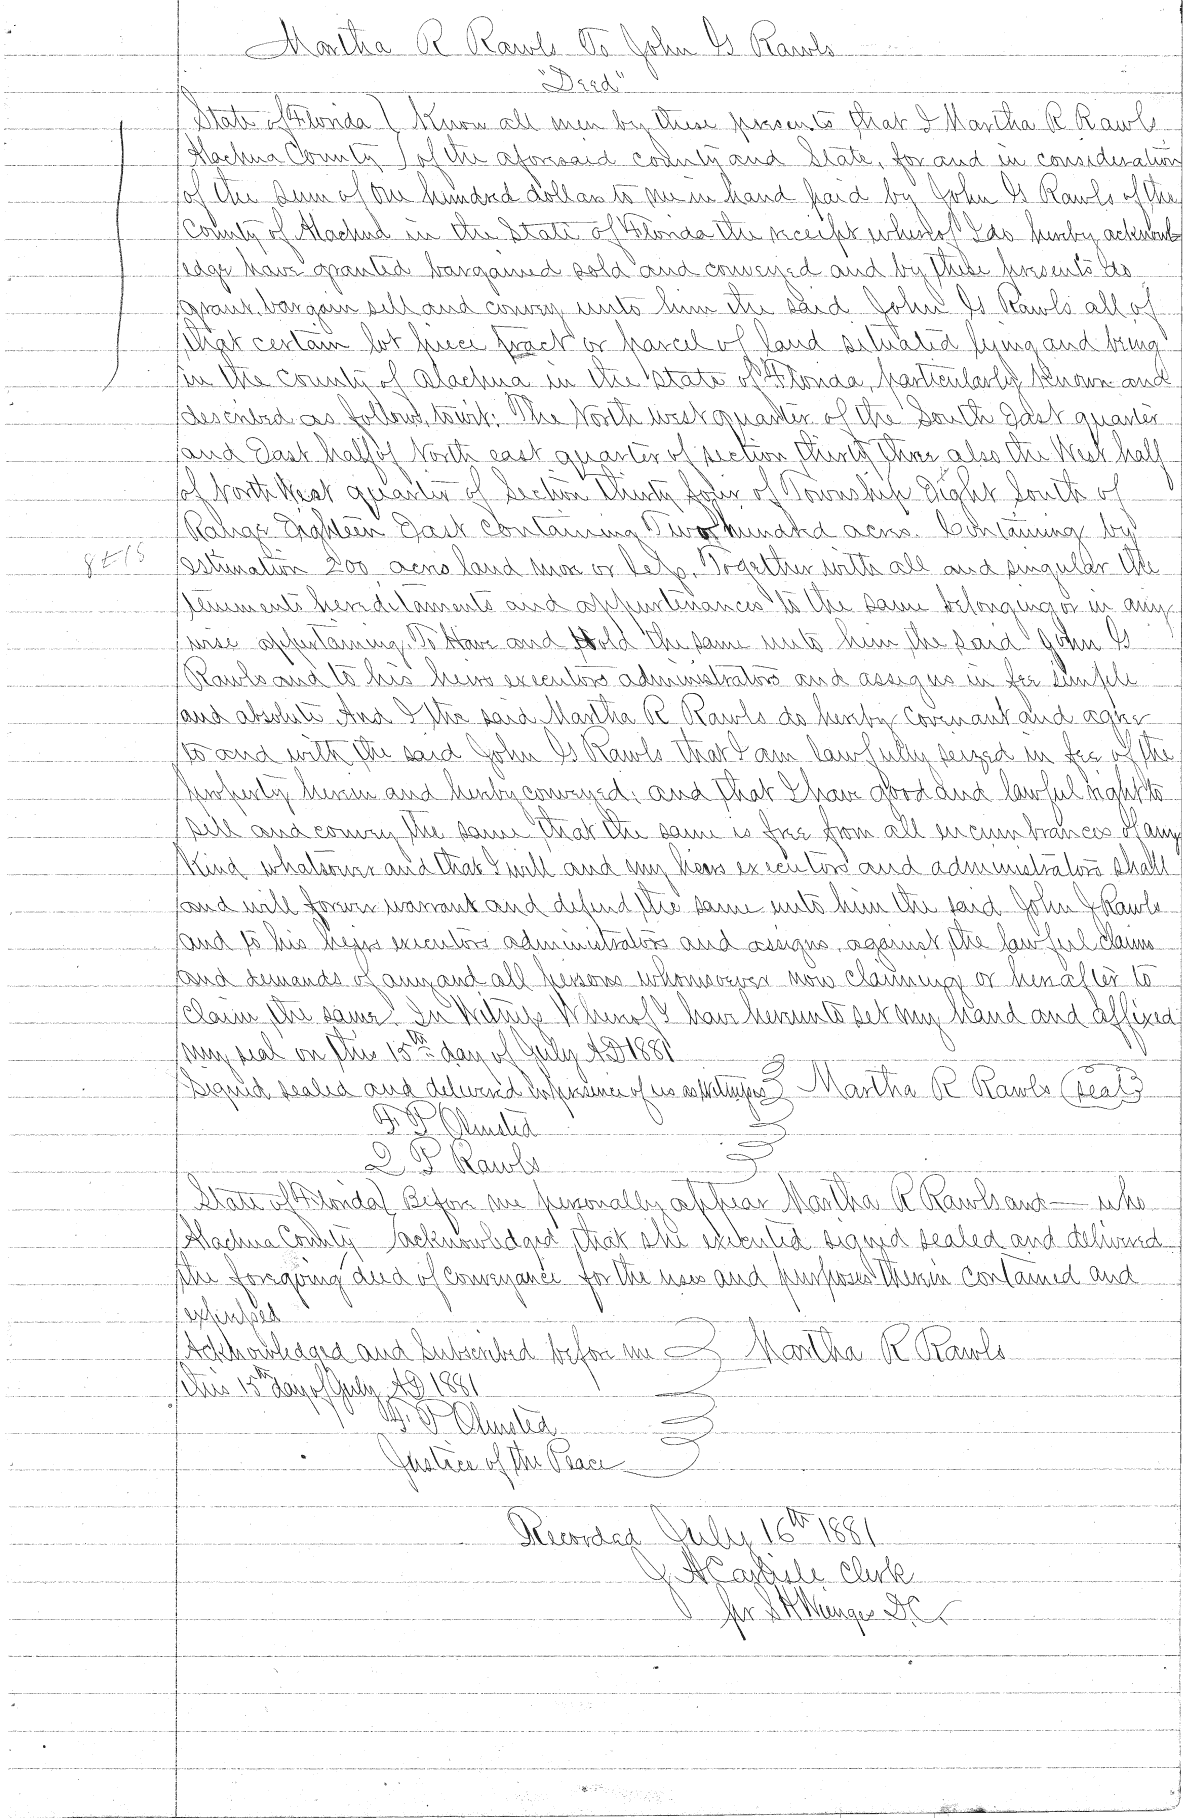 Martha R Rawls To John G Rawls
"Deed"
State of Florida } Know all men by these presents that I Martha R Rawls
Alachua County } of the aforesaid county and State, for and in consideration
of the sum of one hundred dollars to me in hand paid by John G Rawls of the
County of Alachua in the State of Florida the receipt whereof I do hereby acknowl
edge have granted bargained sold and conveyed and by these presents do
grant, bargain sell and convey unto him the said John G Rawls all of
that certain lot piece tract or parcel of land situated lying and being
in the county of Alachua in the state of Florida, particularly known and
described as follows, towit: The North west quarter of the South East quarter
and East half of North east quarter of section thirty three also the West half
of North West quarter of Section Thirty four of Township Eight South of
Range Eighteen East Containing Two hundred acres. Containing by
8+18
estimation 200 acres land more or less. Together with all and singular the
tenements hereditaments and appurtenances to the same belonging or in any
wise appertaining. To Have and Hold the same unto him the said John G
Rawls and to his heirs executors administrators and assigns in fee simple
and absolute And I the said Martha R Rawls do hereby covenant and agree
to and with the said John G Rawls that I am lawfully seized in fee of the
property herein and hereby conveyed; and that I have good and lawful right to
sell and convey the same that the same is free from all incumbrances of any
Kind whatsoever and that I will and my heirs executors and administrators shall
and will forever warrant and defend the same unto him the said John G Rawls
and to his heirs executors administrators and assigns, against the lawful claims
and demands of any and all persons whomsoever now claiming or hereafter to
claim the same. In Witness Whereof I have hereunto set my hand and affixed
my seal on this 15th day of July AD 1881
Signed sealed and delivered in presence of us as witnesses } Martha R Rawls (seal)
F P Olmsted
Q P Rawls
State of Florida } Before me personally appear Martha R Rawls and — who
Alachua County } acknowledged that she executed signed sealed and delivered
the foregoing deed of conveyance for the uses and purposes therein contained and
expressed
Acknowledged and Subscribed before me } Martha R Rawls
this 15th day of July AD 1881
F P Olmsted
Justice of the Peace
Recorded July 16th 1881
J A Carlisle Clerk
per S H Wienges D.C.